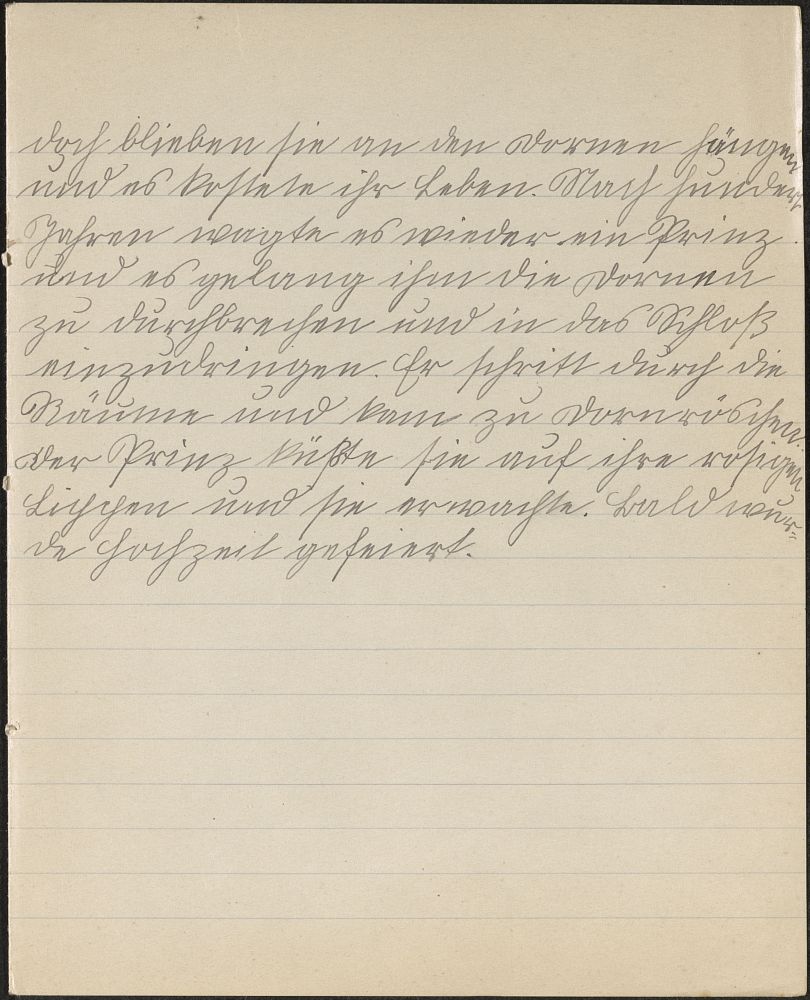 doch blieben sie an den Dornen hängen
und es kostete ihr Leben. Nach hundert
Jahren wagte es wieder ein Prinz
und es gelang ihm die Dornen
zu durchbrechen und in das Schloß
einzudringen. Er schritt durch die
Räume und kam zu Dornröschen.
Der Prinz küßte sie auf ihre rosigen
Lippchen und sie erwachte. Bald wur-
de Hochzeit gefeiert.